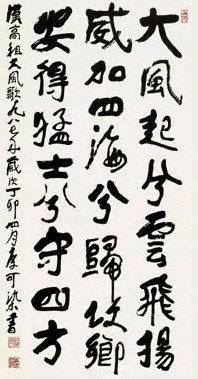 大風起兮雲飛揚
威加四海兮歸故鄉
安得猛士兮守四方
漢高祖大風歌九八七年歲次丁卯四月李可染書